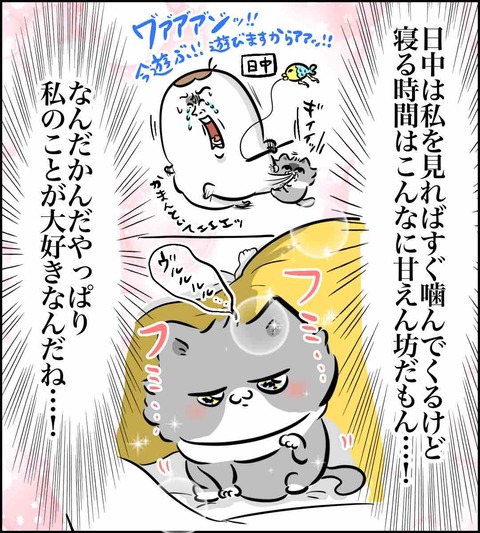 日中は私を見ればすぐ噛んでくるけど
寝る時間はこんなに甘えん坊だもん…！
ヴァアアアンッ!!
今遊ぶ!! 遊びますからアアッ!!
日中
ギィィッ
なんだかんだやっぱり
私のことが大好きなんだね…！
ヴルルルル…
フミ
フミ